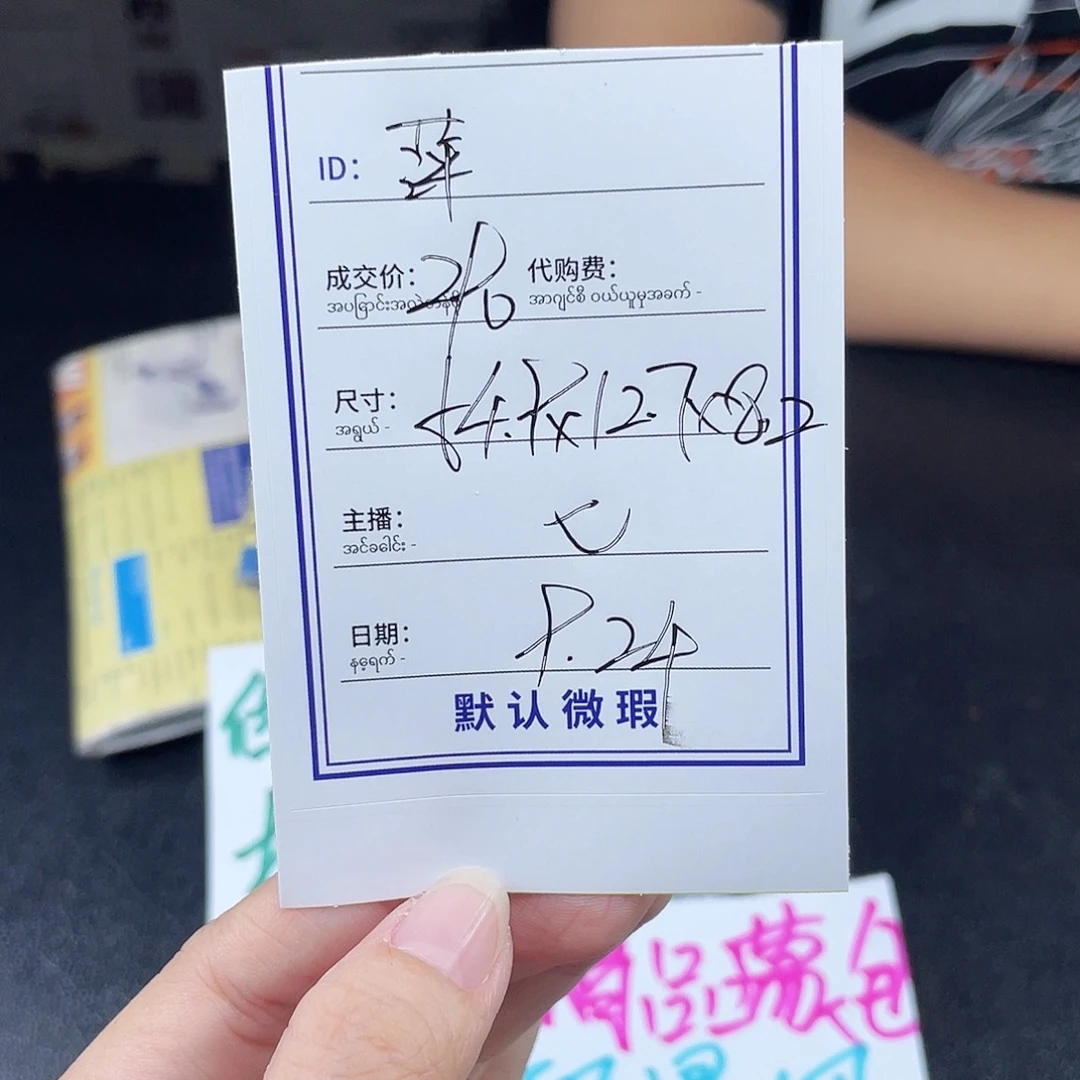 ID: 萍
成交价: 290 代购费:
အပြောင်းအလဲတန်ဖိုး အာဂျင်စီ ဝယ်ယူမှုအခက် -
尺寸: 54.9x12.7x8.2
အရွယ် -
主播: 七
အင်ခေါင်း -
日期: 9.24
နေ့ရက် -
默认微瑕